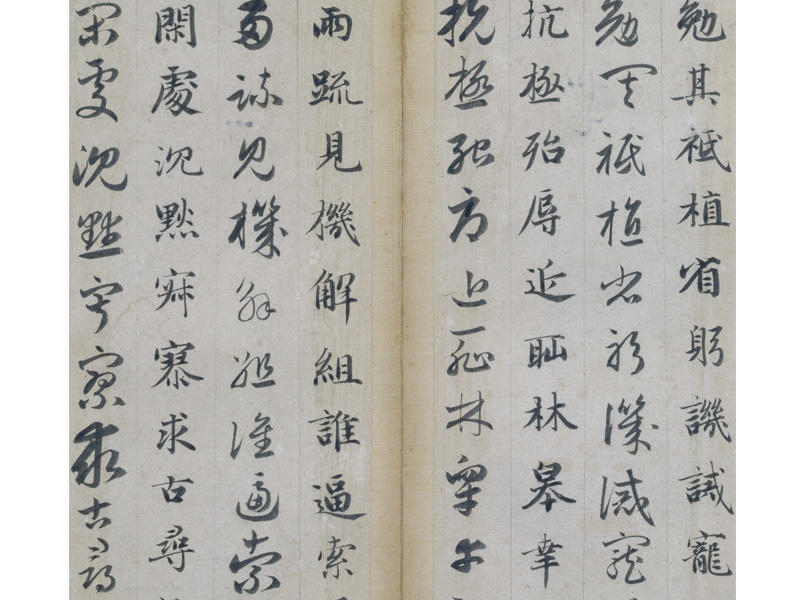 勉其祗植省躬譏誡寵
勉其祗植省躬譏誡寵
抗極殆辱近恥林皋幸
抗極殆辱近恥林皋幸
兩疏見機解組誰逼索
兩疏見機解組誰逼索
閑處沉默寂寥求古尋
閑處沉默寂寥求古尋